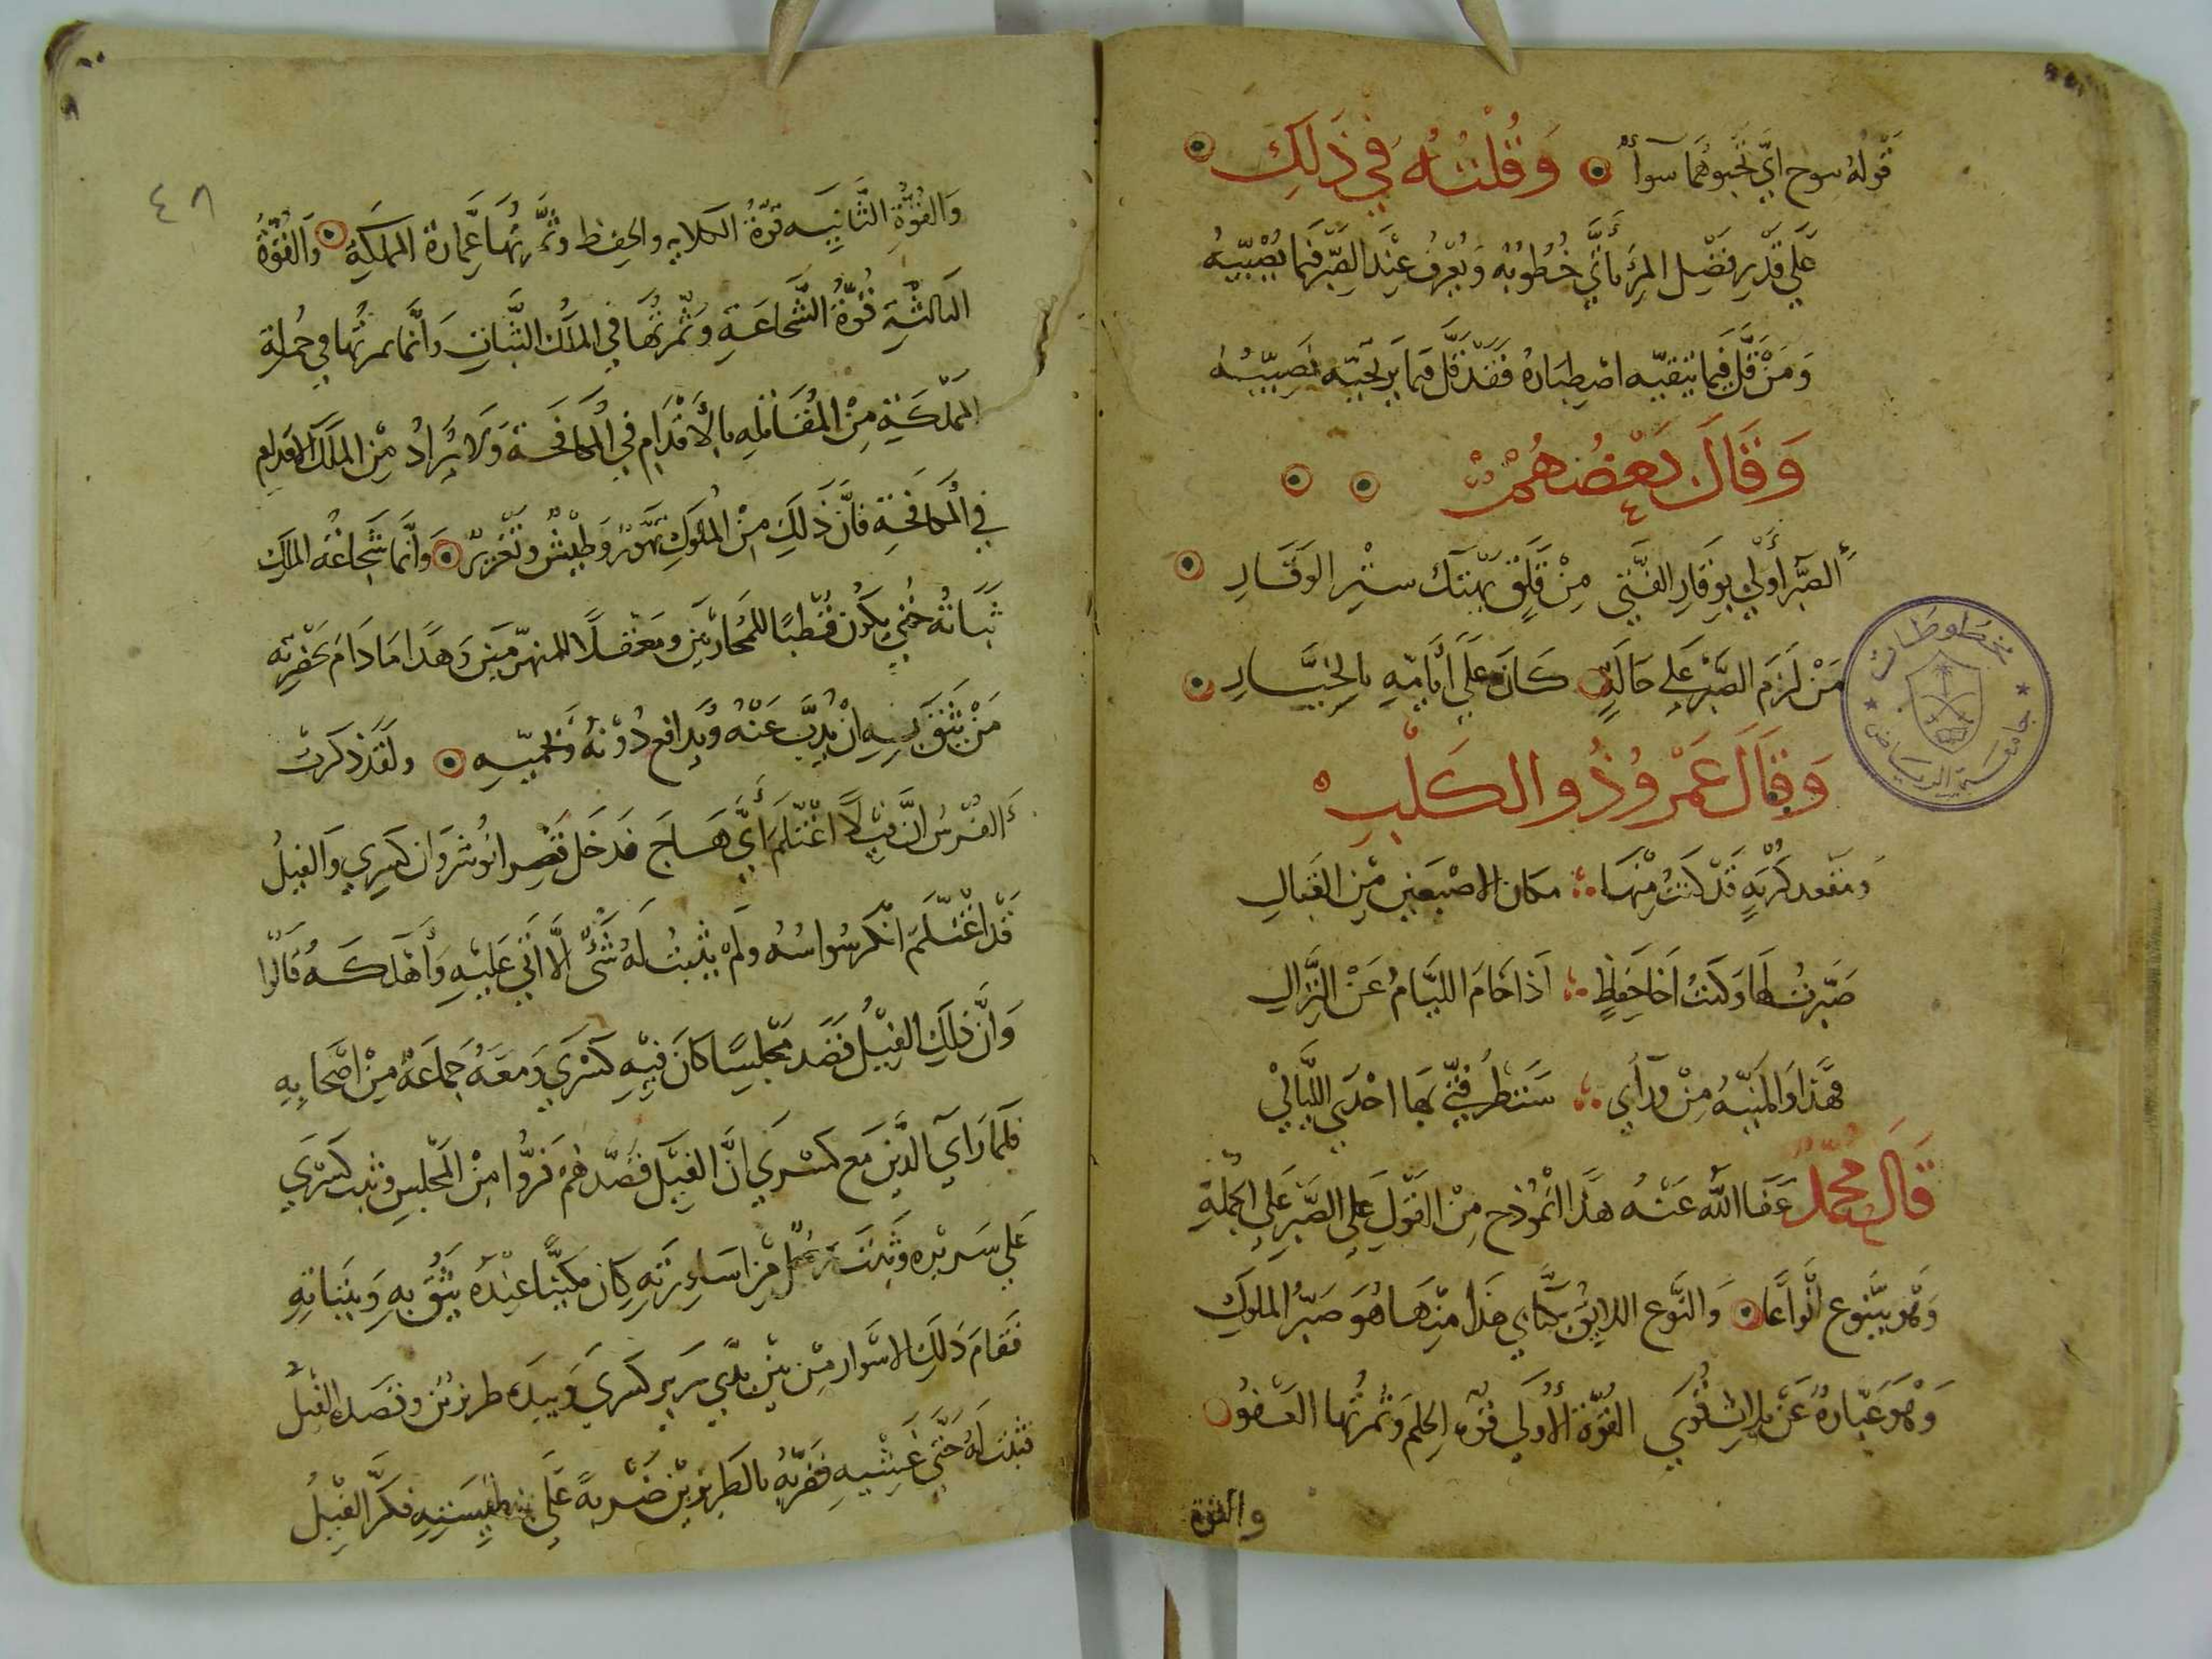 قَوْلهُ سوح ايّ نحْبوهُمَا سَوآءً ۞ وَقُلْتُهُ فِي ذَلِكَ ۞
عَلَي قَدْرِ فَضْلِ المَرْءِ تَأتَي خُطُوبُهُ وَيُعْرَفُ عِنْدَ الصَّبْرِ فيمَا يُصِيْبهُ
وَمَنْ قَلَّ فيمَا يَتقيه اصْطِبَارهُ فَقَدْ قَلَّ فيمَا يَرْتَجيه نَصِيْبُهُ
وَقَالَ بَعْضُهُمْ ۞ ۞
الصَّبْرُ أوْلي بِوَقَارِ الفَتَي مِنْ قَلَقٍ يَهْتك ستْرِ الوَقَارِ ۞
مَنْ لَزمَ الصَّبْرَ عَلي حَالَةٍ كَانَ عَلَي أيَّامِهِ بالخِيَارِ ۞
وَقَالَ عَمْرو ذُو الكَلْبِ
وَمَقْعدِ كُرْبَةٍ قَدْ كُنْتُ مِنْهَا مكان الاصْبَعَينِ مِن القبَالِ
صَبَرْتُ لهَا وَكُنْتُ اَخَا حِفَاظٍ اذَا خَامَ اللئَامُ عَنْ النِّزَالِ
فَهَذَا وَالمَنِيَّهُ مِنْ وَرآءي سَتنظُر فتي بهَا احْدَي اللَّيَالِيْ
قَالَ مُحَمَّدُ عَفَا اللَّهُ عَنْهُ هَذَا انْمُوذج مِنْ القَوْلِ عَلي الصَّبْرِ عَلَي الجُمْلَةِ
وَهُوَ يَتنَوع انْوَاعًا ۞ وَالنَّوْع اللايق بكتَابِي هَذا مِنْهَا هُوَ صَبْرُ المُلُوكِ
وَهُوَ عِبَارةٌ عَنْ ثَلاثِ قُوَي القُوَّة الأُولَي قُوّةِ الحِلم وَثَمرَتُها العَفوُ
والقوة
٤٨
وَالقُوَّةِ الثَّانِيَه قُوّةُ الكَلايه والحِفظ وَثَمَرتُهَا عِمَارة المملكَةِ ۞ وَالقُوّةُ
الثالثَةِ قُوَّةُ الشَّجَاعَةِ وَثَمَرتُهَا في المَلِك الثَّبَات وَانَّما ثمرتُهَا في حُملةِ
المَمْلكَةِ مِنْ المُقَاتلِهِ بالأقْدَام فِي المكَافحَة وَلا يُرَادُ مِن المَلِك الاقدام
فِي المكَافحَةِ فَانَّ ذَلِكَ مِنْ المُلُوكِ تَهَوّر وَطَيْشٌ وتَغْرِيرٌ ۞ وَانَّما شَجَاعَتُه المَلكِ
ثَبَاتُهُ حَتَّي يكُون قُطْبًا للمُحَاربيْنِ وَمَعْقلاً للمنهَزمينِ وَهَذَا مَا دَامَ بحَضْرتِه
مَنْ يَثِقَ بِهِ انْ يُذبَّ عَنْهُ وَيُدَافع دُوْنهُ وَيحْميْهِ ۞ ولقَدْ ذكَرتْ
الفُرْسُ انَّ فِيْلاً اغْتَلَمَ أيَّ هَاجَ فَدَخَل قَصْرِ انُوشروَان كِسْري وَالفِيلُ
قَدْ اغْتَلَمَ انْكَر سُوَاسُهُ وَلَمْ يَثْبت لَهُ شَيءٌ إلَّا اَتَي عَلَيْهِ وَأهْلكَهُ قَالُوا
وَانَّ ذَلِكَ الفِيْلُ قصَدَ مَجْلِسًا كَانَ فِيْهِ كسْرَي وَمَعَهُ جَمَاعَةٌ مِنْ اصْحَابِهِ
فَلَمَّا رَآي الَّذينَ مَع كسْرَي انَّ الفِيْلَ قصَدهُم فَرُّوا مِنْ المَجْلِسِ وثبت كسْرَي
عَلَي سَريْره وَثَبتَ رَجُلٌ مِن اسَاوِرَته كان مَكينًا عِنْدَهُ يَثِقُ بهِ وَبثَباتهِ
فَقَامَ ذَلِكَ الاسْوَار مِنْ بَيْن يَدَي سَريرِ كسْرَي وَبيَدَهِ طبرزين وقَصَدهُ الفِيْلُ
فثبت لَهُ حَتَّي غَشِيَهِ فَضَربَهُ بالطبرزيْن ضَرْبةً عَلَي فنطيسَتِهِ فكَرَّ الفِيْلُ
مخطوطات
جامعة الرياض